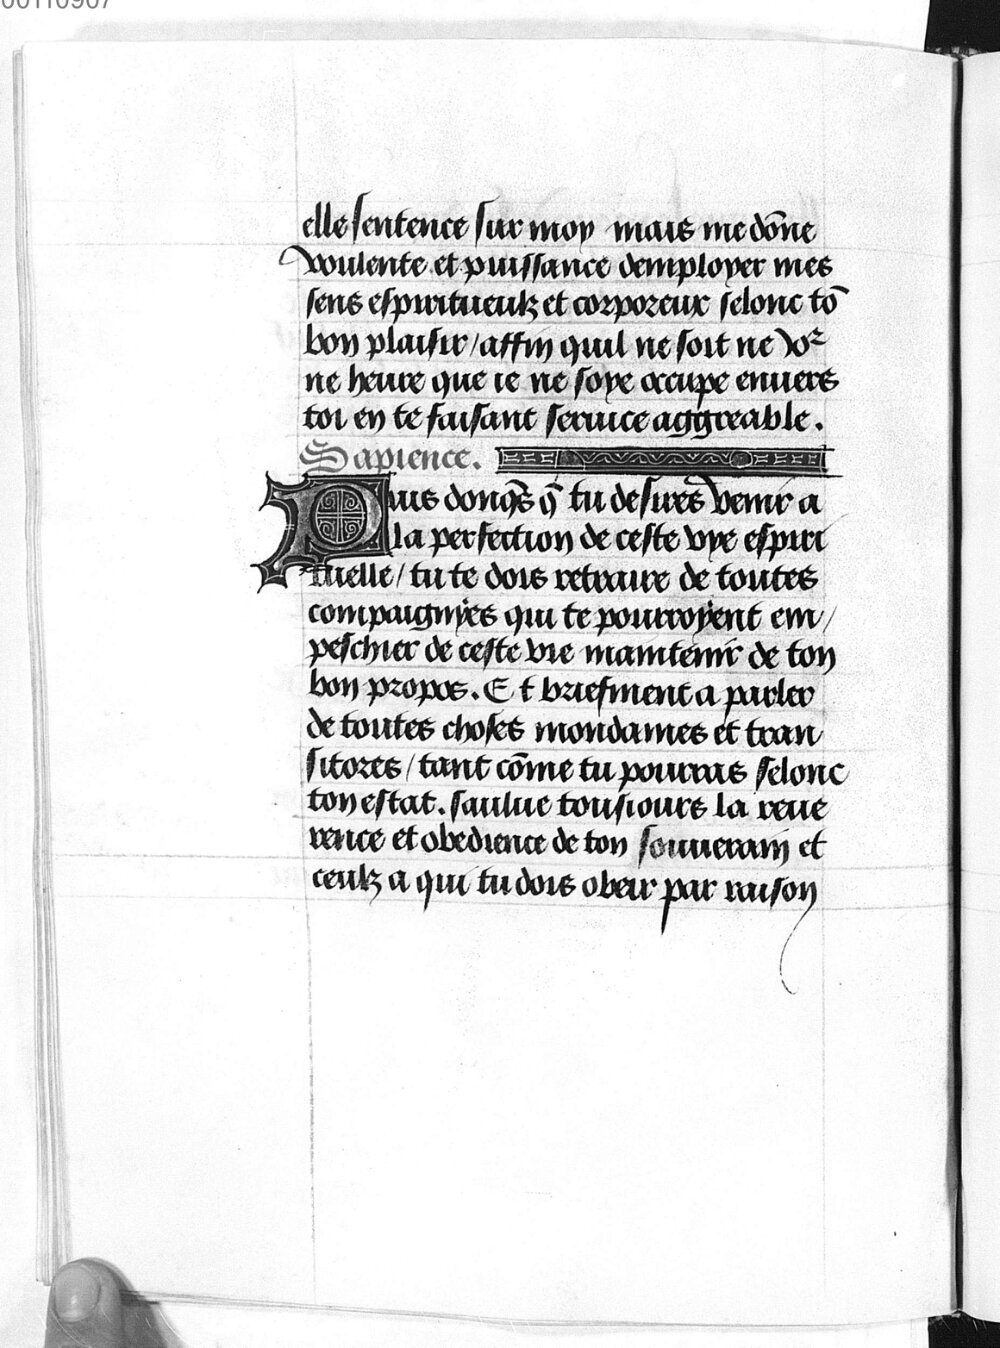 00110907
elle sentence sur moy mais me dōne
voulente et puissance demployer mes
sens espirituelz et corporeux selonc tō
bon plaisir / affin quil ne soit ne Jor
ne heure que ie ne soye occupe enuers
toi en te faisant seruice aggreable .
Sapience .
Puis donqs̄ q̄ tu desires venir a
la perfection de ceste vye espiri
tuelle / tu te dois retraire de toutes
compaignyes qui te pourroyent em /
peschier de ceste vie maintenir de ton
bon propos . Et briefment a parler
de toutes choses mondaines et tran
sitores / tant cōme tu pourras selonc
ton estat . saulue tousiours la reue
rence et obedience de ton souuerain et
ceulz a qui tu dois obeir par raison